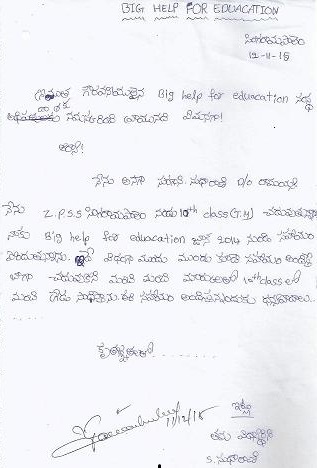 BIG HELP FOR EDUACATION
సింగరాయపాలెం
12-11-15
గౌరవనీయులైన Big help for eduacation సంస్థ
నమస్కరించి వ్రాయునది ఏమనగా!
అయ్యా!
నేను అనగా సుధారాణి D/o రామయ్య
నేను Z.P.S.S సింగరాయపాలెం నందు 10th class (T.M) చదువుతున్నాను
నాకు Big help for eduacation జూన్ 2014 నుండి సహాయం
పొందుతున్నాను. ఇదే విధంగా ముందు ముందు కూడా సహాయం అందిస్తే
బాగా చదువుకుని మంచి మంచి మార్కులతో 10th class లో
మంచి గ్రేడు సాధిస్తాను. ఈ సహాయం అందిస్తున్నందుకు ధన్యవాదాలు...
కృతజ్ఞతలతో.......
11/12/15
ఇట్లు
తమ విధేయురాలు
S. సుధారాణి